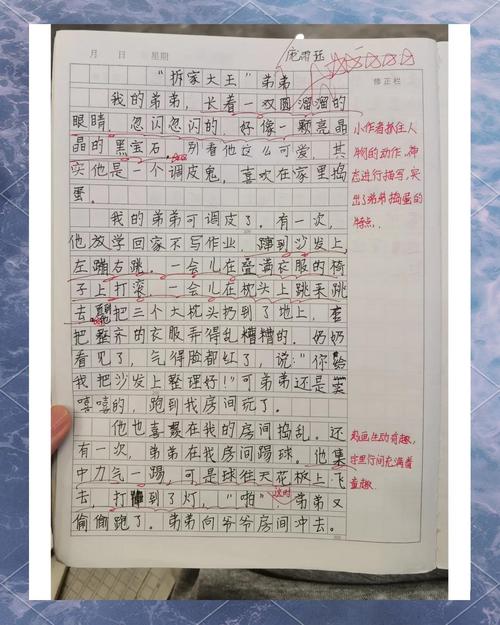 月 日 星期
修正栏
“拆家大王”弟弟
我的弟弟,长着一双圆溜溜的
眼睛,忽闪忽闪的,好像一颗亮晶
晶的黑宝石。别看他这么可爱,其
实他是一个调皮鬼,喜欢在家里捣
蛋。
我的弟弟可调皮了。有一次,
他放学回家不写作业,蹿到沙发上,
左蹦右跳。一会儿在叠满衣服的椅
子上打滚,一会儿在枕头上跳来跳
去。把三个大枕头扔到了地上,
把整齐的衣服弄得乱糟糟的。奶奶
看见了,气得脸都红了,说:“你给
我把沙发上整理好!”可弟弟还是
嘻嘻的,跑到我房间玩了。
他也喜欢在我的房间捣乱。还
有一次,弟弟在我房间踢球。他集
中力气一踢,可是球往天花板上飞
去,打到了灯,“啪”,这时弟弟又
偷偷跑了。弟弟向爷爷房间冲去。
小作者抓住人
物的动作,神
态进行描写,突
出了弟弟捣蛋的
特点。
刻画生动有趣,
字里行间充满着
童趣。